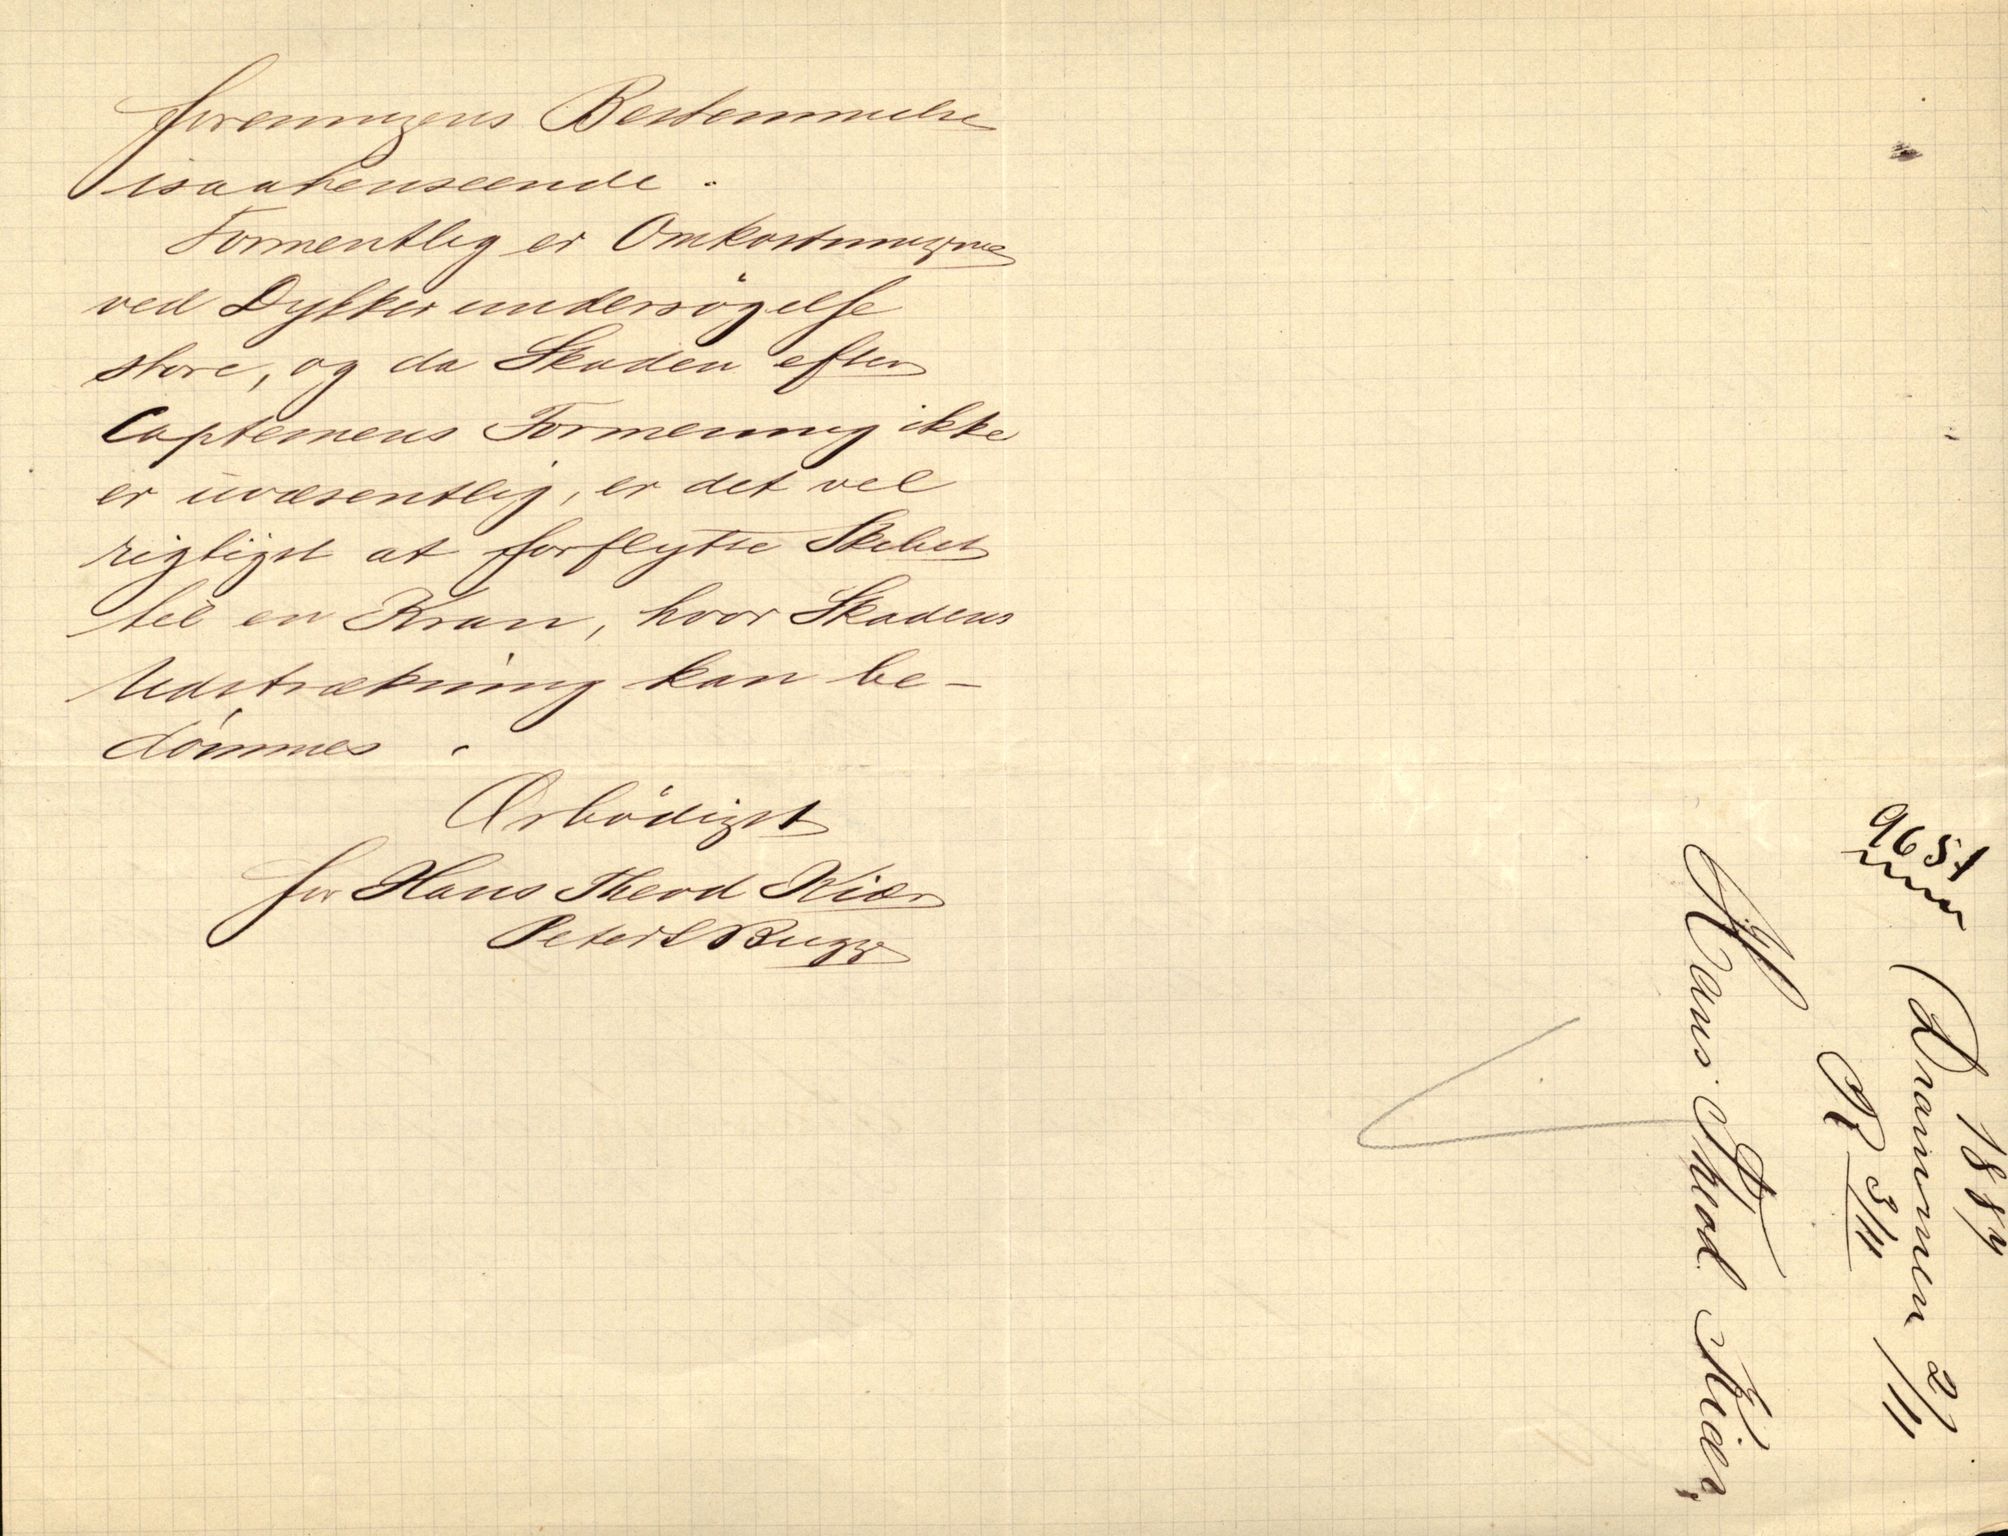 foreningens Bestemmelse
isaahenseende.
Formentlig er Omkostningerne
ved Dykkerundersögelse
store, og da Skaden efter
Capteinens Formening ikke
er uvæsentlig, er det vel
rigtigst at forflytte Skibet
til en Kran, hvor Skadens
Udstrækning kan be-
dömmes.
Ærbödigst
for Hans Theod Kiær
Peter Bugge
9651
1884
Drammen 2/11
R 3/11
Hans Theod Kiær,